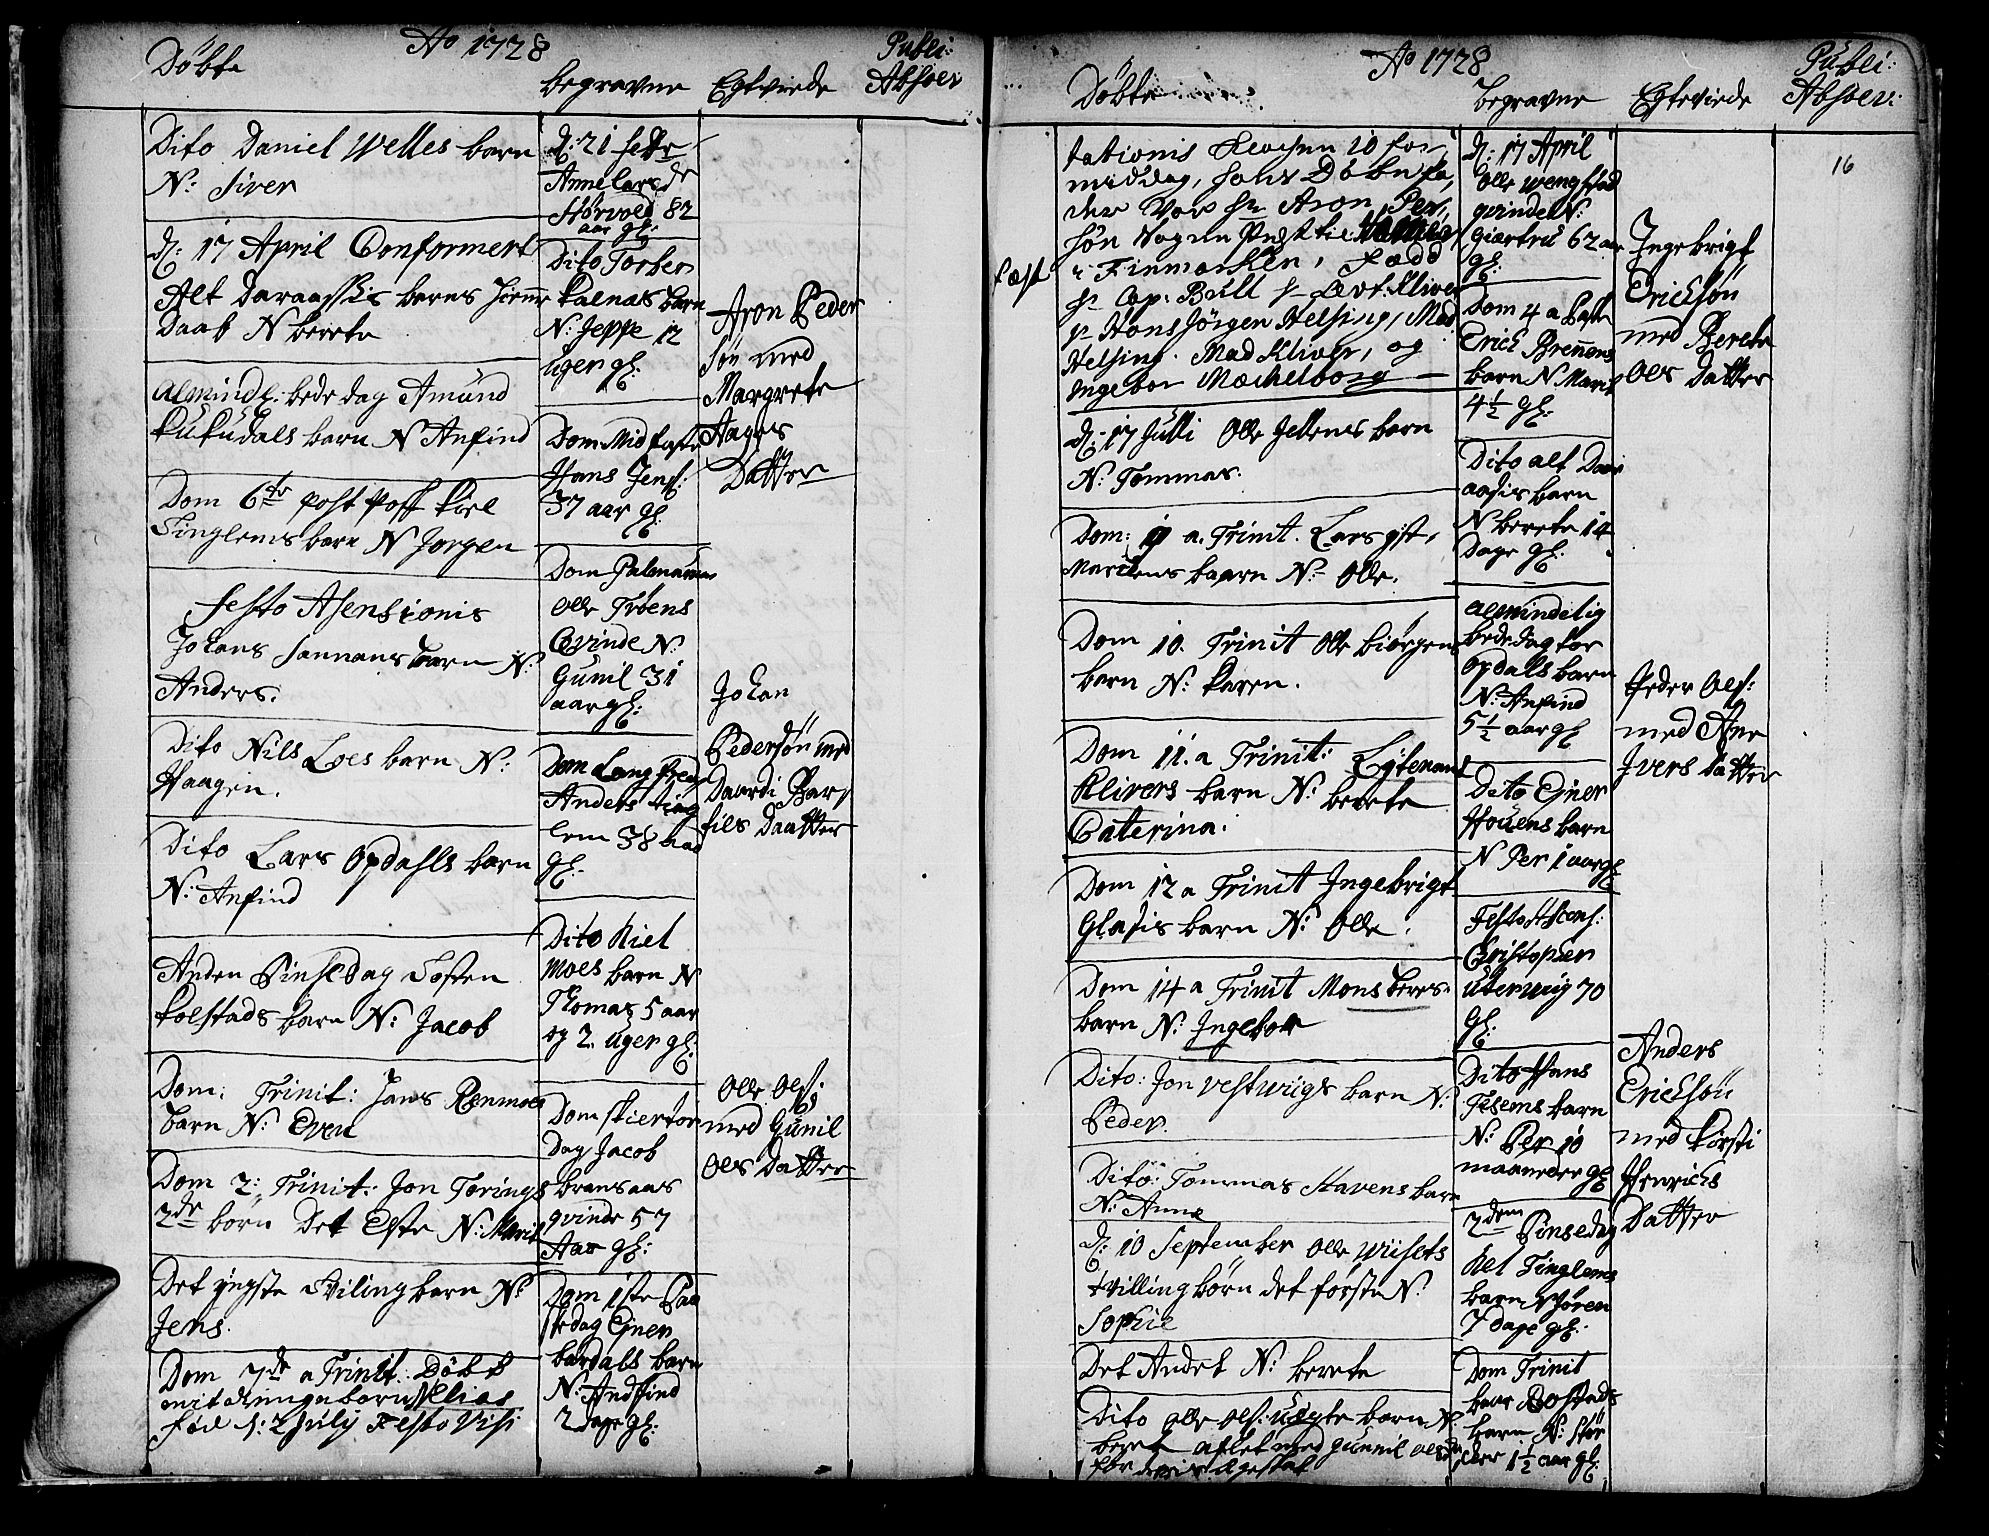 Ao 1728
Döbte
begravne
Egtviede
Publi:
Absolv
Dito Daniel Welles barn
N: Siver
d: 17 April Conformert
Alt Daraasis barns
Daab N berete
Almindl: bededag Amund
Kukudals barn N Anfind
Dom 6te post
Singlems barn N Jorgen
Festo Asensionis
Johans Sannans barn N:
Anders.
Dito Nils Loes barn N:
Haagen.
Dito Lars Opdahls barn
N: Anfind
Anden Pinsedag Sosten
Kolstads barn N: Jacob
Dom: Trinit: Jens Renmoes
barn N: Even
Dom 2: Trinit: Jon Torings
2de börn Det Elste N: Marit
Det yngste Tvilingbarn N:
Jens.
Dom 7de a Trinit: Döbt
mit barn N Elias
fød d: 2 July Festo Visi
d: 21 febr
Anne Lars dr
Hørvold 82
aar gl:
Dito Torber
Kalnas barn
N: Jeppe 12
uger gl:
Dom Midfaste
Hans Jens:
37 aar gl:
Dom Palmarum
Olle Tröens
Qvinde N:
Gunil 31
aar gl:
Dom Lang
Anders Ting
lem 38 aar
gl:
Dito Kiel
Moes barn N
Thomas 5 aar
og 2. uger gl:
Dom Skiertors
Dag Jacob
bransaas
qvinde 57
Aar gl:
Dom 1ste Paa
skedag Ejner
bardals barn
N: Andfind
2 dage gl:
Aron Peder
søn med
Margrete
Aages
Datter
Johan
Pedersön med
Daardi Bar
fils Daatter
Olle Ols:
med Gunil
Ols Datter
Ao 1728
Döbte
begravne
Egteviede
Publi:
Absolv:
16
tationis Klochen 10 for
middag, hans Döbnefa,
der Var hr Aron Per,
sön Vogne Præst til
i Finmarken, Fadd
hr Cap: Bull hr Levt: Kliver
hr Hans Jörgen Helsing, Mad
Helsing. Mad Kliver, og
Ingebor Mechelborg
d: 17 Julli Olle Jellems barn
N: Tommas.
Dom: 9 a. Trinit. Lars
barn N: Olle.
Dom 10. Trinit Olle Biörgens
barn N: Karen.
Dom 11. a Trinit: Lytenant
Klivers barn N: berete
Caterina.
Dom 12 a Trinit Ingebrigt
Glasis barn N: Olle.
Dom 14 a Trinit Mons beres
barn N: Ingebor
Dito: Jon Vestwigs barn N:
Peder.
Dito: Tommas Stavens barn
N: Anne
d: 10 September Olle Wüsets
tvillingbörn det förste N:
Sophie
Det Andet N: berete
Dito Olle Ols: uægte barn N:
beret aflet med Gunnil Ols
for deris Egteskab
d: 17 April
Olle Wengstad
qvinde N:
Giertru 62 aar
gl:
Dom 4 a Pask
Erich Brennens
barn N Marit
4½ gl:
Dito Alt Dar
aasis barn
N berete 14
Dage gl:
Almindelig
bededag for
Opdalls barn
N: Anfind
5½ aar gl
Dito Ejner
Houens barn
N Per 1 aar gl:
Festo Ascens:
Christopher
Uberwig 70
gl:
Dito Hans
Tesems barn
N: Per 10
maaneder gl
2dem Pinsedag
Kel Tinglems
barn N Sören
7 dage gl:
Dom Trinit
Rostads
barn N:
1½ aar gl:
Ingebrigt
Ericksön
med Berete
Ols Datter
Peder Ols:
med Ane
Ivers Datter
Anders
Ericksön
med Körsti
Henrichs
Datter